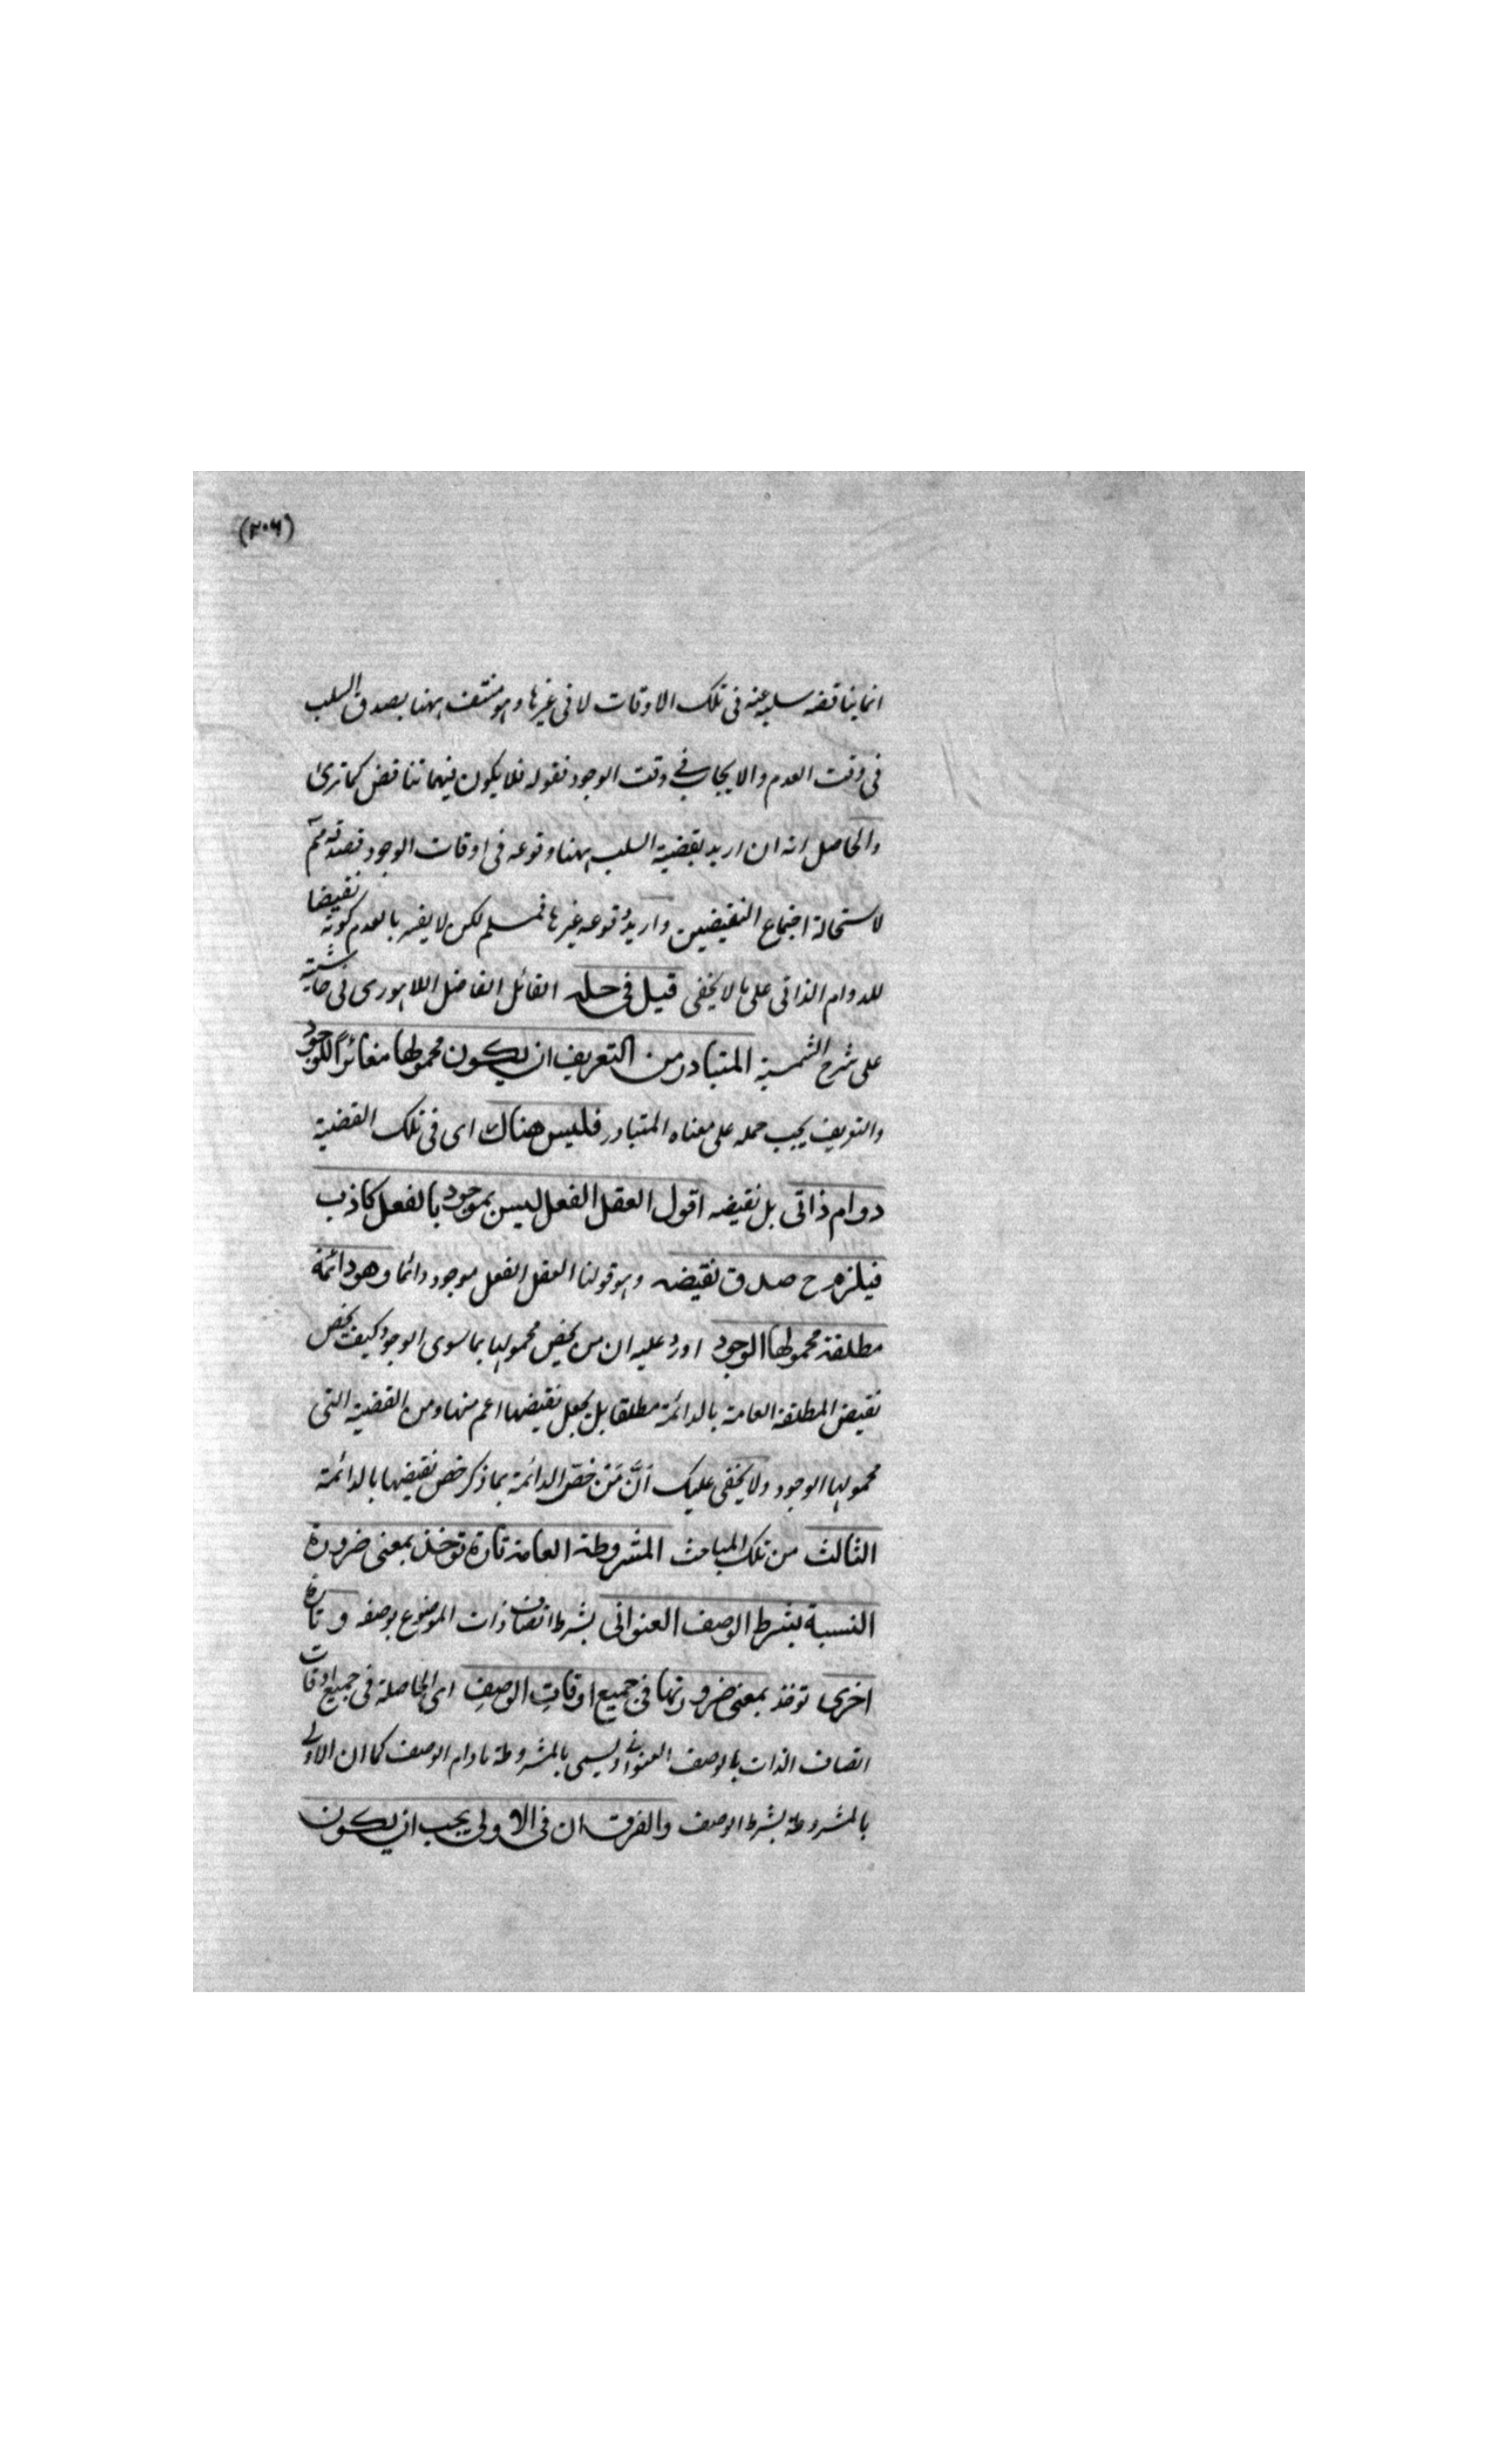 (٢٠٦)
انما يناقضه سلبه عنه فى تلك الاوقات لا فى غيرها وهو منتف ههنا بصدق السلب
فى وقت العدم والايجاب فى وقت الوجود فقوله فلا يكون بينهما تناقض كما ترى
والحاصل انه ان اريد بقضية السلب ههنا وقوعه فى اوقات الوجود فصدقه مم
لاستحالة اجتماع النقيضين واريد وقوعه غيرها فمسلم لكن لا يضر بالعدم كونه نقيضا
للدوام الذاتى على ما لا يخفى قيل فى حله القائل الفاضل اللاهورى فى حاشيته
على شرح الشمسية المتبادر من التعريف ان يكون محمولها مغائرا للوجود
والتعريف يجب حمله على معناه المتبادر فليس هناك اى فى تلك القضية
دوام ذاتى بل نقيضه اقول العقل الفعل ليس بموجود بالفعل كاذب
فيلزم ح صدق نقيضه وهو قولنا العقل الفعل موجود دائما وهو دائمة
مطلقة محمولها الوجود اورد عليه ان من يخص محمولها بما سوى الوجود كيف يخص
نقيض المطلقة العامة بالدائمة مطلقا بل يجعل نقيضها اعم منها ومن القضية التى
محمولها الوجود ولا يخفى عليك اَنَّ مَنْ خصّ الدائمة بما ذكر خص نقيضها بالدائمة
الثالث من تلك المباحث المشروطة العامة تارة توخذ بمعنى ضرورة
النسبة بشرط الوصف العنوانى بشرط اتصاف ذات الموضوع بوصفه و تارة
اخرى توخذ بمعنى ضرورتها فى جميع اوقات الوصف اى الحاصلة فى جميع اوقات
اتصاف الذات بالوصف العنوانى ويسمى بالمشروطة مادام الوصف كما ان الاولى
بالمشروطة بشرط الوصف والفرق ان فى الاولى يجب ان يكون